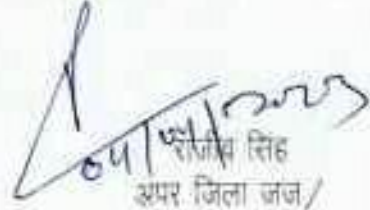 04/04/2023
राजीव सिंह
अपर जिला जज/